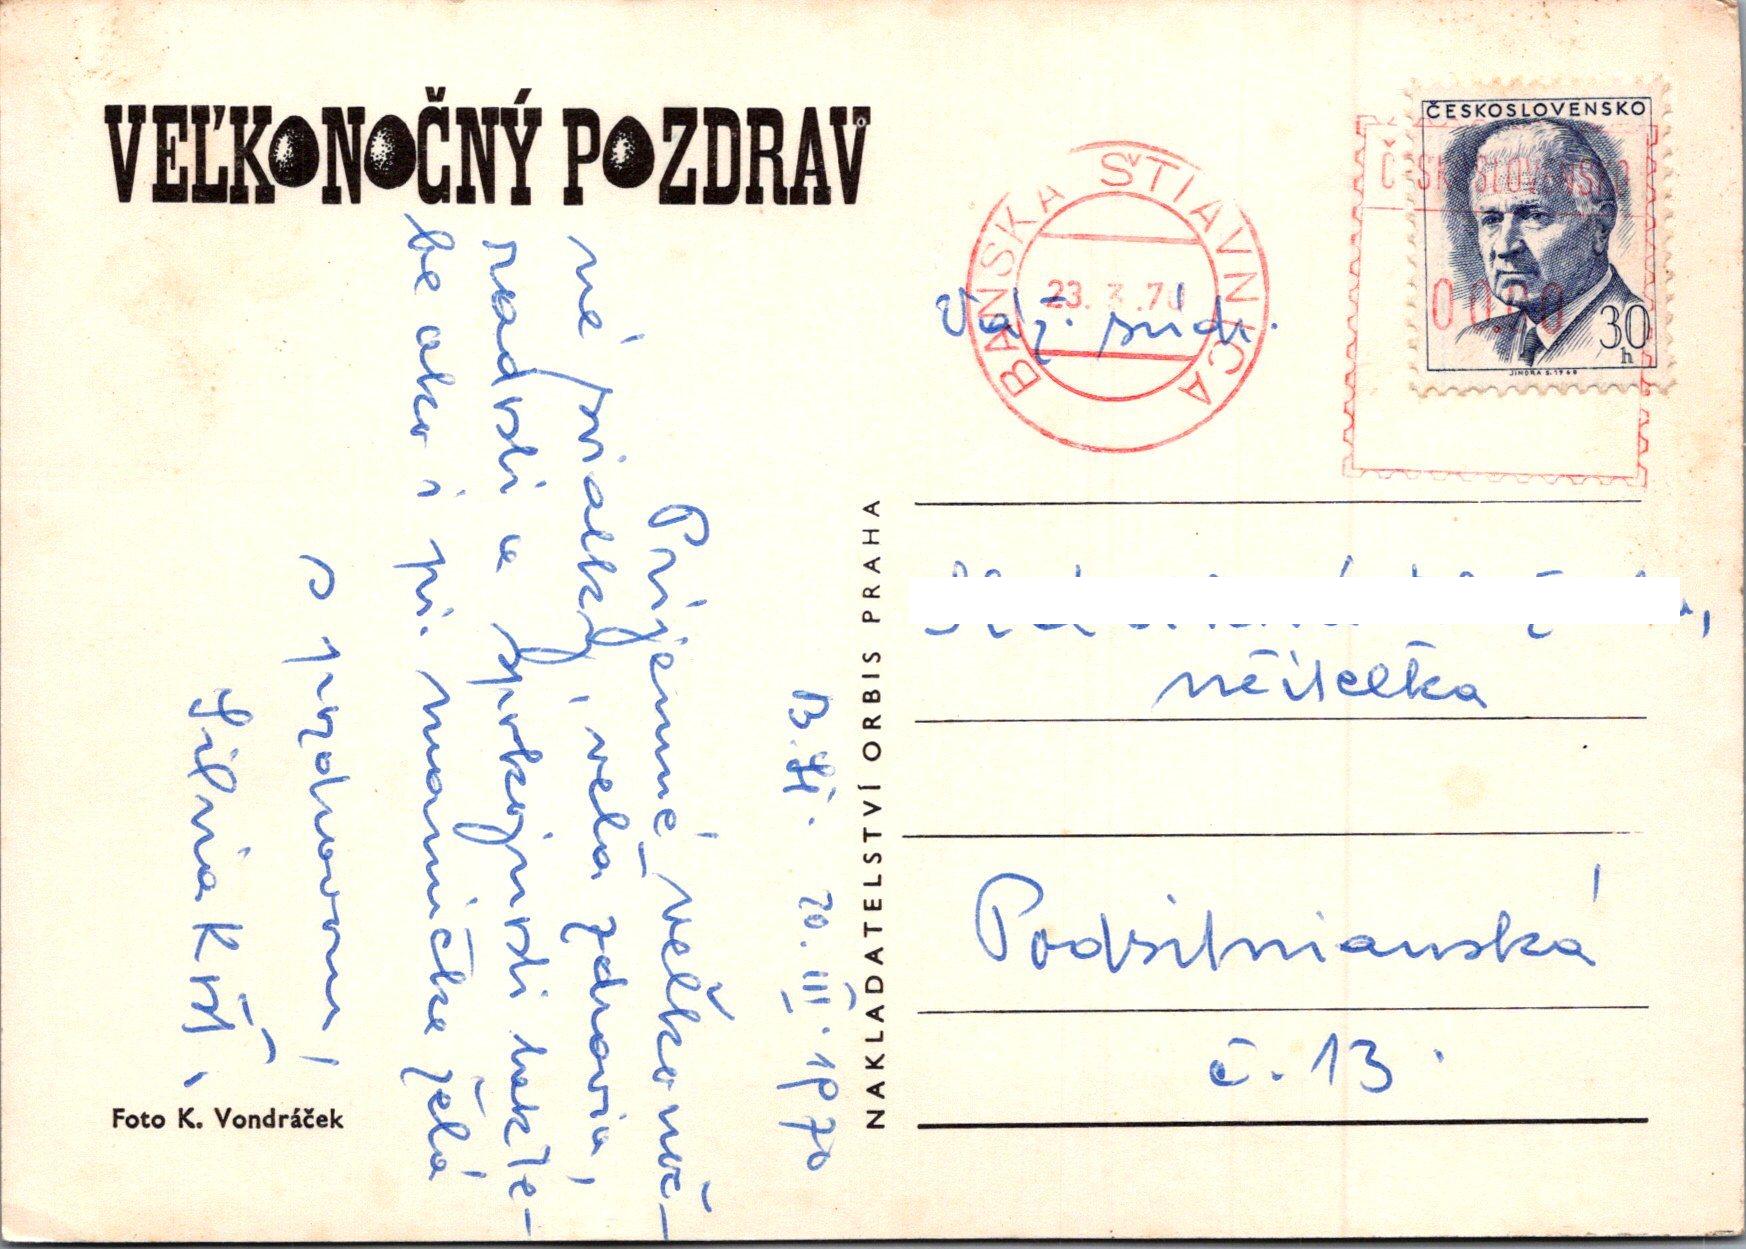 VEĽKONOČNÝ POZDRAV
B. Št. 20. III. 1970
Príjemné veľkonoč-
né sviatky, veľa zdravia,
radosti a spokojnosti tak Te-
be ako i p. mamičke želá
s pozdravom,
Silvia
Foto K. Vondráček
NAKLADATELSTVÍ ORBIS PRAHA
BANSKÁ ŠTIAVNICA
23. 3. 70
ČESKOSLOVENSKO
30
h
JINDRA S. 1968
ČESKOSLOVENSKO
00.00
Váž. súdr.
učiteľka
Podsitnianská
č. 13.